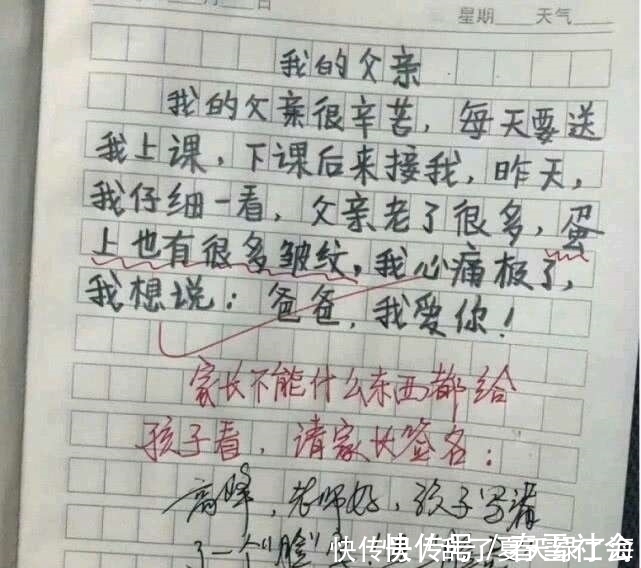 星期 天气
我的父亲
我的父亲很辛苦，每天要送
我上课，下课后来接我，昨天，
我仔细一看，父亲老了很多，蛋
上也有很多皱纹，我心痛极了，
我想说：爸爸，我爱你！
家长不能什么东西都给
孩子看，请家长签名：
高峰，老师好，孩子写错
了一个“脸”
快传